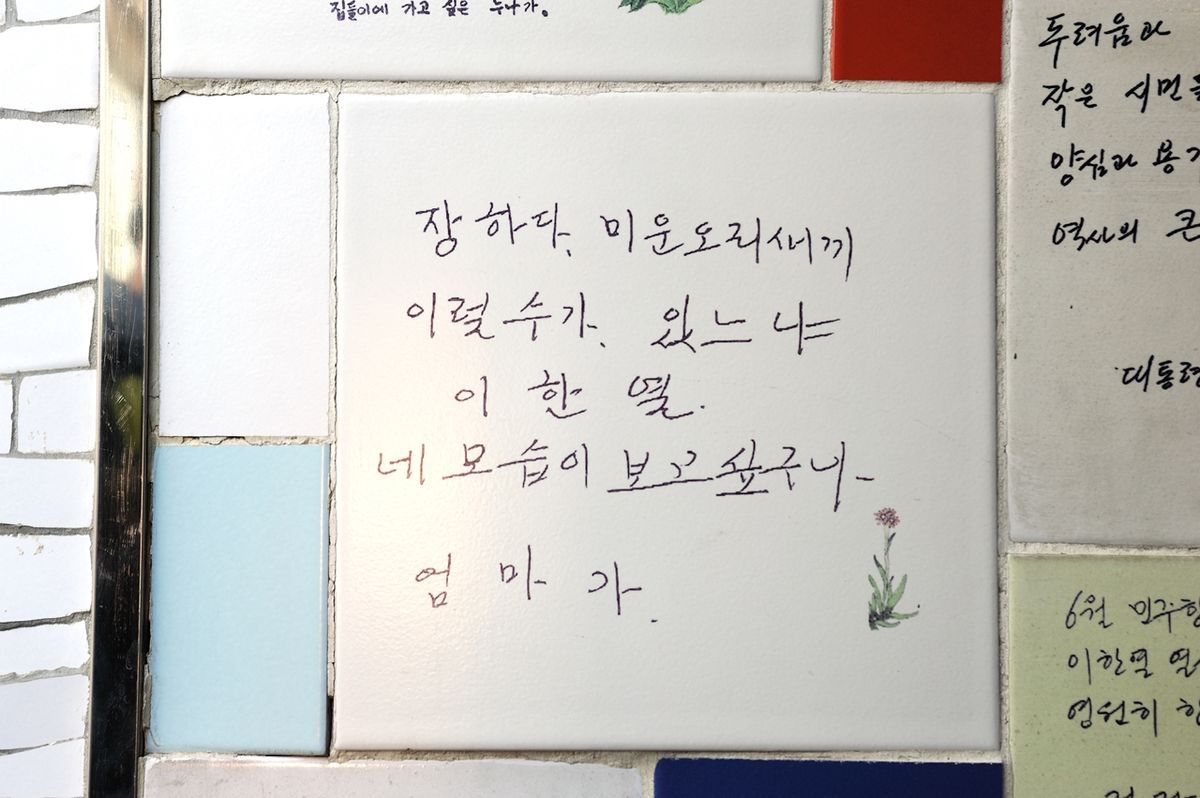 집들이에 가고 싶은 누나가.
장하다. 미운오리새끼
이럴 수가. 있느냐
이 한 열.
네 모습이 보고싶구나-
엄 마 가.
두려움과
작은 시민들
양심과 용기
역사의 큰
대통령
6월 민주항
이한열 열사
영원히